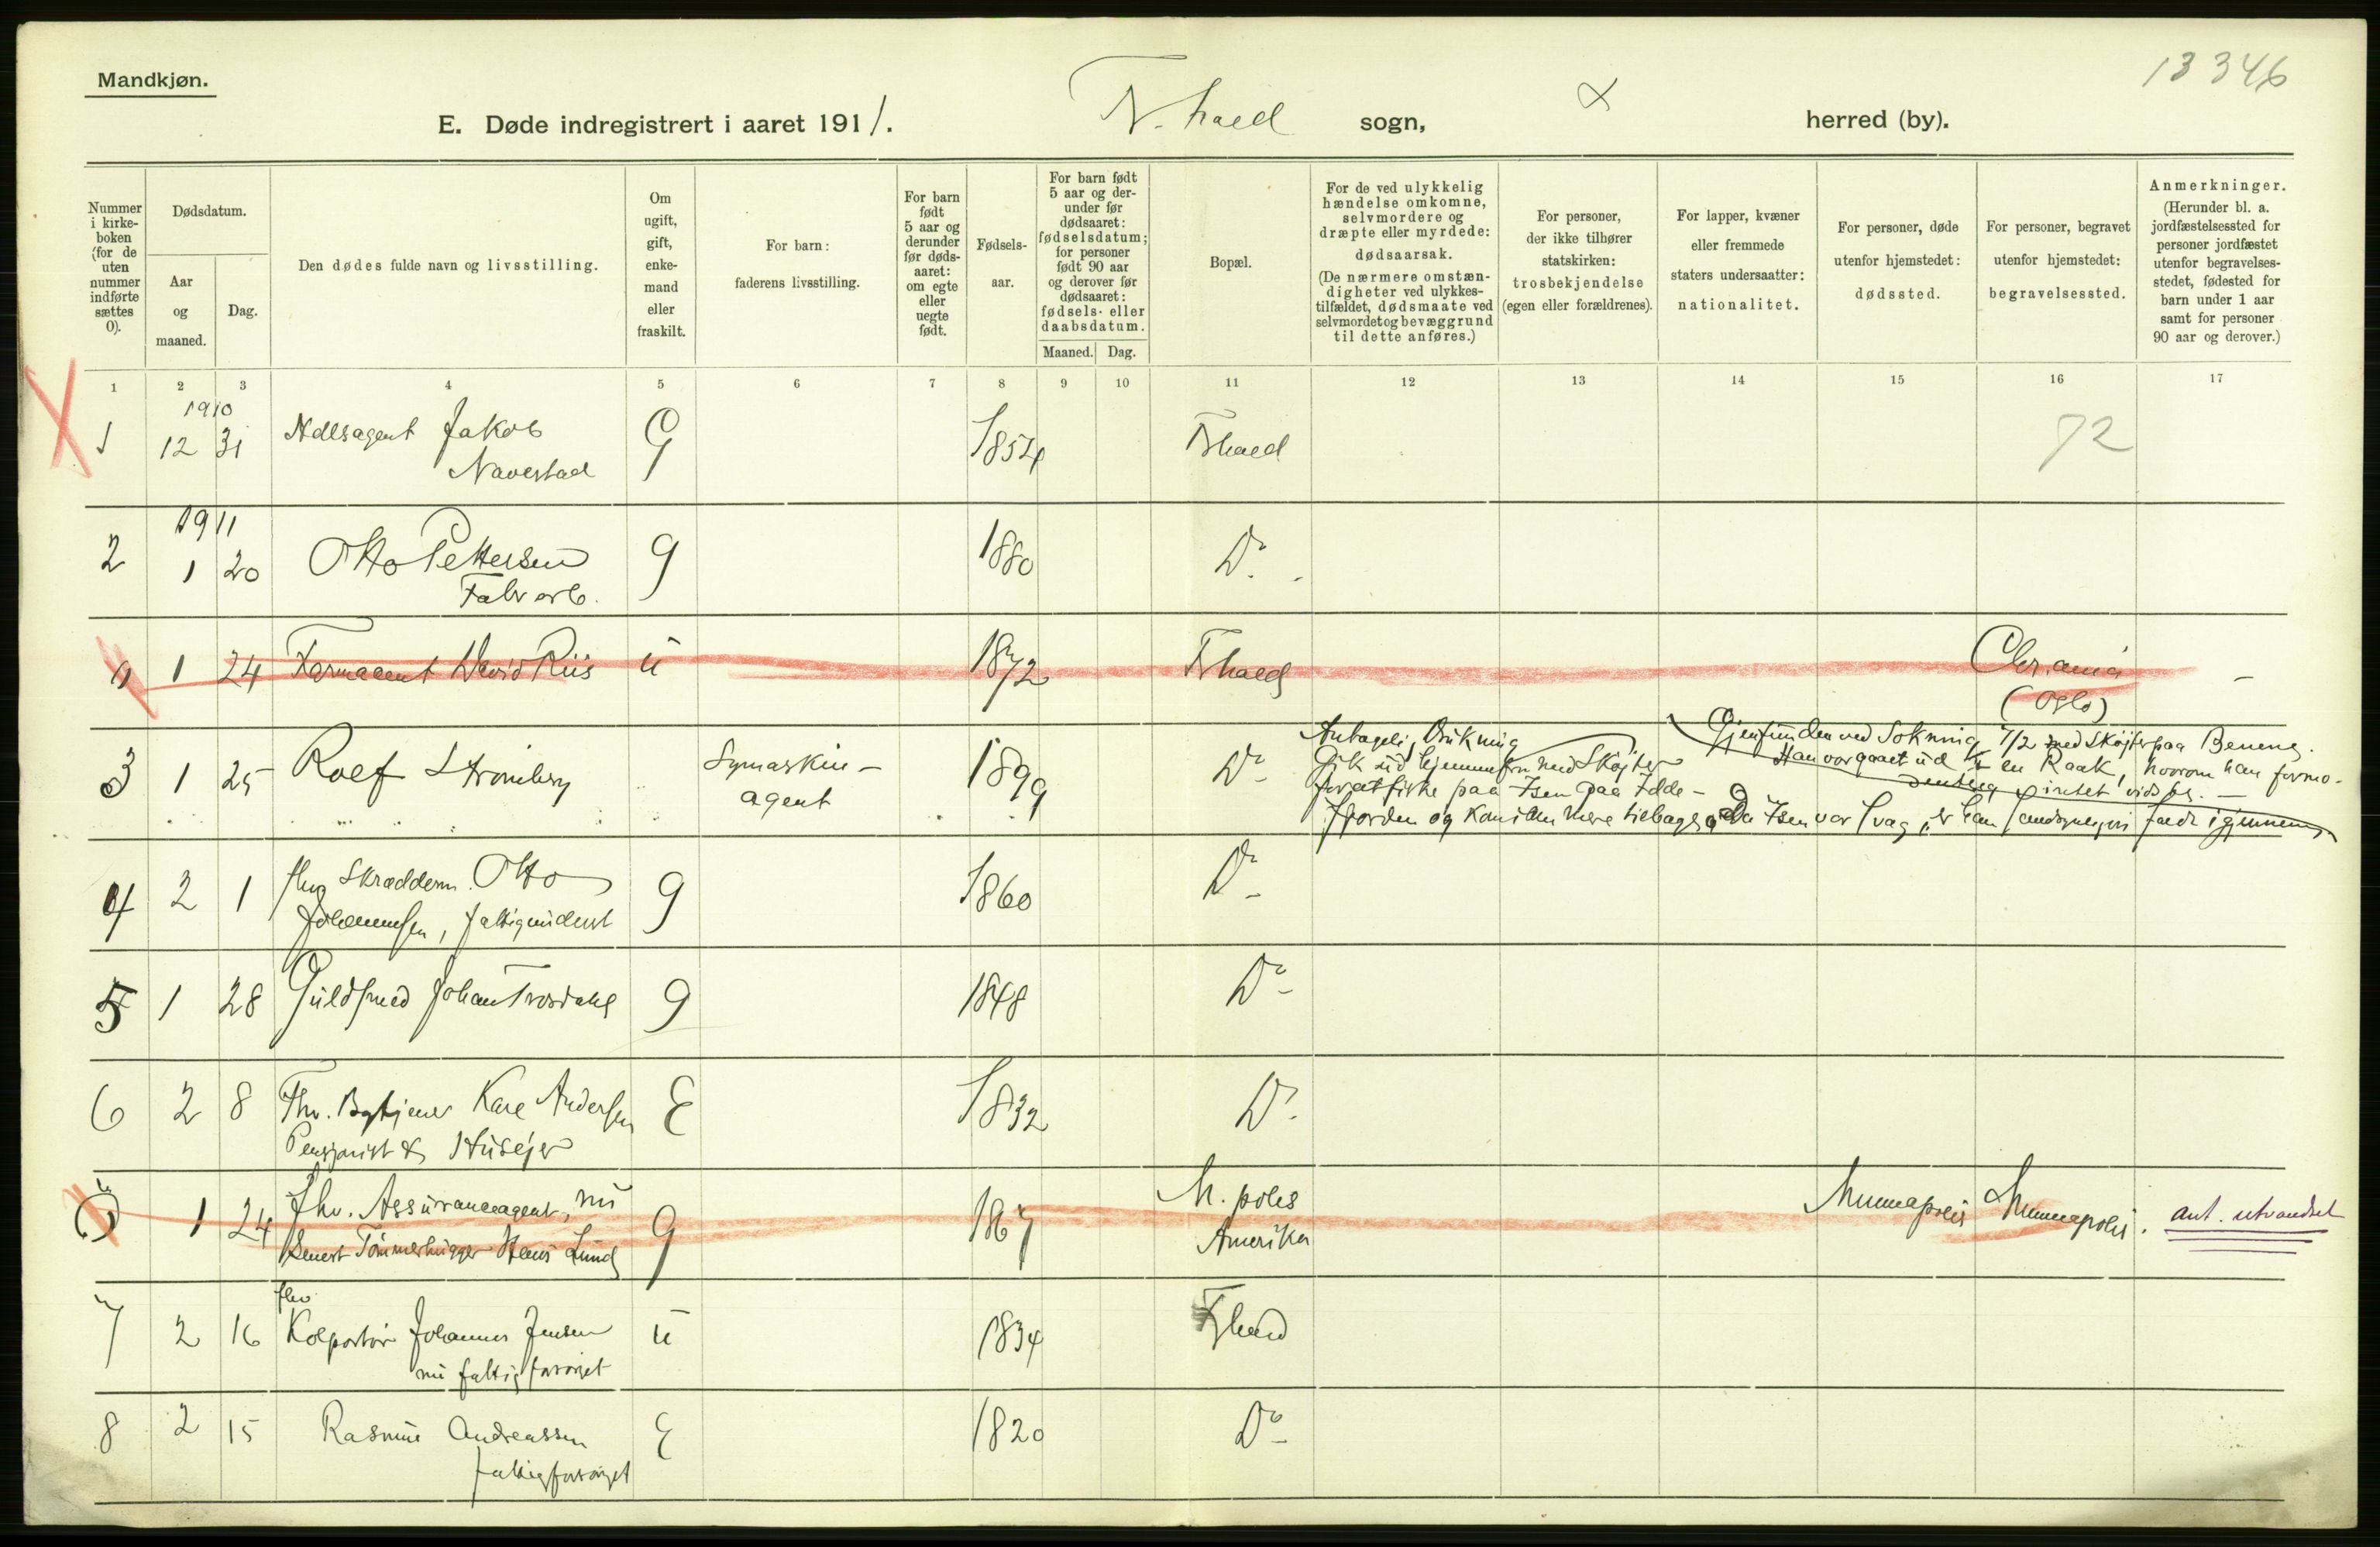 Mandkjøn.
13 346
E. Døde indregistrert i aaret 1911.
sogn,
herred (by).
Nummer i kirke-boken (for de uten nummer indførte sættes 0).
Dødsdatum.
Aar og maaned.
Dag.
Den dødes fulde navn og livsstilling.
Om ugift, gift, enke-mand eller fraskilt.
For barn: faderens livsstilling.
For barn født 5 aar og derunder før døds-aaret: om egte eller uegte født.
Fødsels-aar.
For barn født 5 aar og der-under før dødsaaret: fødselsdatum; for personer født 90 aar og derover før dødsaaret: fødsels- eller daabsdatum.
Maaned.
Dag.
Bopæl.
For de ved ulykkelig hændelse omkomne, selvmordere og dræpte eller myrdede: dødsaarsak.
(De nærmere omstæn-digheter ved ulykkes-tilfældet, dødsmaate ved selvmordet og bevæggrund til dette anføres.)
For personer, der ikke tilhører statskirken: trosbekjendelse (egen eller forældrenes).
For lapper, kvæner eller fremmede staters undersaatter: nationalitet.
For personer, døde utenfor hjemstedet: dødssted.
For personer, begravet utenfor hjemstedet: begravelsessted.
Anmerkninger.
(Herunder bl. a. jordfæstelsessted for personer jordfæstet utenfor begravelses-stedet, fødested for barn under 1 aar samt for personer 90 aar og derover.)
1 2 3 4 5 6 7 8 9 10 11 12 13 14 15 16 17
1910
1 12 31 Jakob G 1854 Frhald 72
Navestad
1911
2 1 20 Otto Pettersen g 1880 Do.
Fabrarb.
1 24 David Riis u 1872 Frhald Chr.ania
(Oslo)
3 1 25 Rolf Strømberg Symaskin- 1899 Do
agent
Antagelig Drukning
Gik ud hjemmefra med Skøjter
for at fiske paa Isen paa Idde-
fjorden og kom ikke mere tilbage
Gjenfunden ved Sokning 7/2 med Skøjter paa Benene.
Han var gaaet ud i en Raak, hvorom han formo-
dentlig intet vidste.
Da Isen var svag, er han sandsynligvis faldt igjennem
4 2 1 fhv Skrædderm. Otto g 1860 Do
Johannesen, fattigunderst
5 1 28 Guldsmed Johan g 1848 Do
6 2 8 Fhv. Karl Andersen E 1832 Do
Pensjonist & Husejer
1 24 fhv. Assuranceagent, nu g 1867 M. polis Minneapolis Minneapolis. ant. utvandret
senest Tømmerhugger Hans Lund Amerika
fhv
7 2 16 Kolportør Johannes Jensen u 1834 Frhald
nu fattigforsørget
8 2 15 Rasmus Andreassen E 1820 Do
fattigforsørget